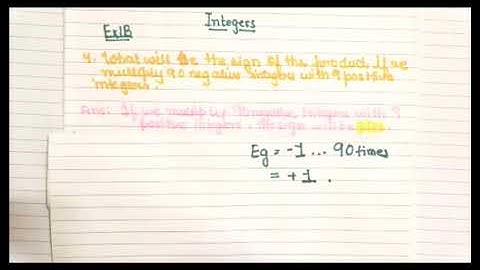 Integers
Ex1B
4. What will be the sign of the product if we
multiply 90 negative integers with 9 positive
integers.
Ans: If we multiply 90 negative integers with 9
positive integers. the sign will be plus.
Eg = -1 ... 90 times
= +1 .